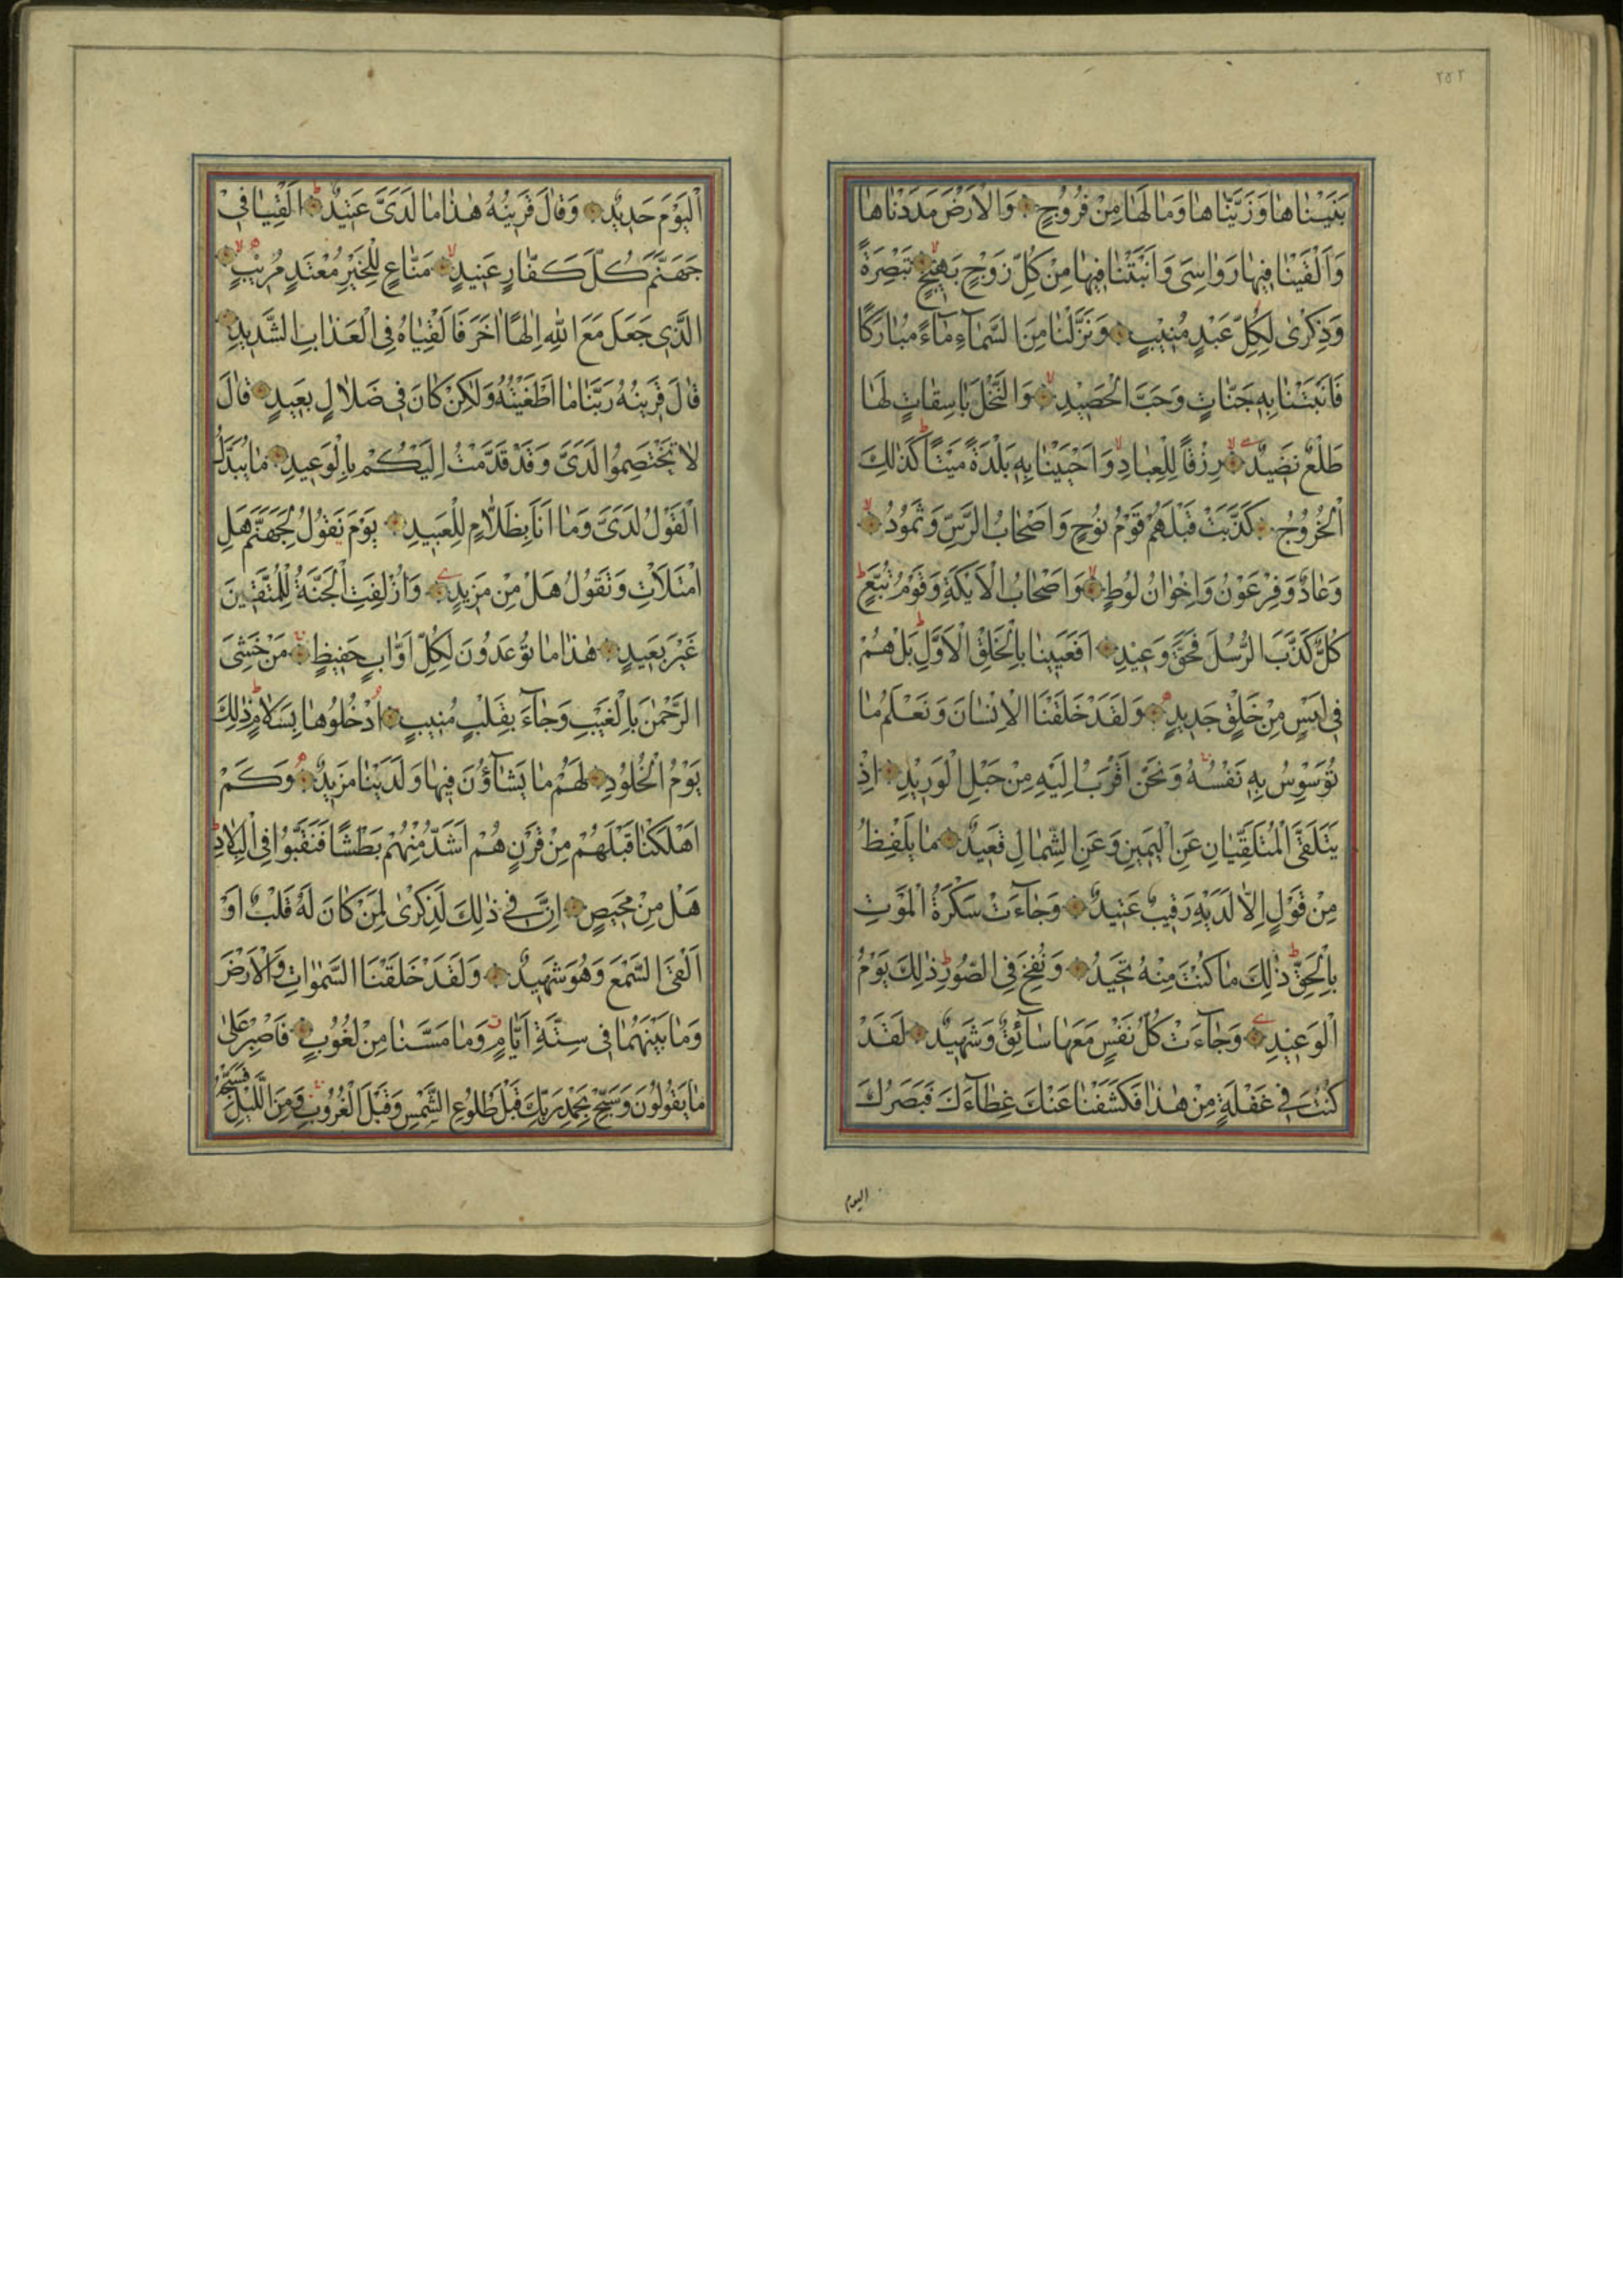 ٢٥٢
بَنَيْنٰاهٰا وَزَيَّنّٰاهٰا وَمٰا لَهٰا مِنْ فُرُوجٍ وَالْاَرْضَ مَدَدْنٰاهٰا
وَاَلْقَيْنٰا فِيهٰا رَوٰاسِىَ وَاَنْبَتْنٰا فِيهٰا مِنْ كُلِّ زَوْجٍ بَهِيجٍ تَبْصِرَةً
وَذِكْرٰى لِكُلِّ عَبْدٍ مُنِيبٍ وَنَزَّلْنٰا مِنَ السَّمٰآءِ مٰآءً مُبٰارَكًا
فَاَنْبَتْنٰا بِهِ جَنّٰاتٍ وَحَبَّ الْحَصِيدِ وَالنَّخْلَ بٰاسِقٰاتٍ لَهٰا
طَلْعٌ نَضِيدٌ رِزْقًا لِلْعِبٰادِ وَاَحْيَيْنٰا بِهِ بَلْدَةً مَيْتًا كَذٰلِكَ
الْخُرُوجُ كَذَّبَتْ قَبْلَهُمْ قَوْمُ نُوحٍ وَاَصْحٰابُ الرَّسِّ وَثَمُودُ
وَعٰادٌ وَفِرْعَوْنُ وَاِخْوٰانُ لُوطٍ وَاَصْحٰابُ الْاَيْكَةِ وَقَوْمُ تُبَّعٍ
كُلٌّ كَذَّبَ الرُّسُلَ فَحَقَّ وَعِيدِ اَفَعَيِينٰا بِالْخَلْقِ الْاَوَّلِ بَلْ هُمْ
فِى لَبْسٍ مِنْ خَلْقٍ جَدِيدٍ وَلَقَدْ خَلَقْنَا الْاِنْسٰانَ وَنَعْلَمُ مٰا
تُوَسْوِسُ بِهِ نَفْسُهُ وَنَحْنُ اَقْرَبُ اِلَيْهِ مِنْ حَبْلِ الْوَرِيدِ اِذْ
يَتَلَقَّى الْمُتَلَقِّيٰانِ عَنِ الْيَمِينِ وَعَنِ الشِّمٰالِ قَعِيدٌ مٰا يَلْفِظُ
مِنْ قَوْلٍ اِلّٰا لَدَيْهِ رَقِيبٌ عَتِيدٌ وَجٰآءَتْ سَكْرَةُ الْمَوْتِ
بِالْحَقِّ ذٰلِكَ مٰا كُنْتَ مِنْهُ تَحِيدُ وَنُفِخَ فِى الصُّورِ ذٰلِكَ يَوْمُ
الْوَعِيدِ وَجٰآءَتْ كُلُّ نَفْسٍ مَعَهٰا سٰآئِقٌ وَشَهِيدٌ لَقَدْ
كُنْتَ فِى غَفْلَةٍ مِنْ هٰذٰا فَكَشَفْنٰا عَنْكَ غِطٰآءَكَ فَبَصَرُكَ
اليوم
الْيَوْمَ حَدِيدٌ وَقٰالَ قَرِينُهُ هٰذٰا مٰا لَدَىَّ عَتِيدٌ اَلْقِيٰا فِى
جَهَنَّمَ كُلَّ كَفّٰارٍ عَنِيدٍ مَنّٰاعٍ لِلْخَيْرِ مُعْتَدٍ مُرِيبٍ
الَّذِى جَعَلَ مَعَ اللّٰهِ اِلٰهًا اٰخَرَ فَاَلْقِيٰاهُ فِى الْعَذٰابِ الشَّدِيدِ
قٰالَ قَرِينُهُ رَبَّنٰا مٰا اَطْغَيْتُهُ وَلٰكِنْ كٰانَ فِى ضَلٰالٍ بَعِيدٍ قٰالَ
لٰا تَخْتَصِمُوا لَدَىَّ وَقَدْ قَدَّمْتُ اِلَيْكُمْ بِالْوَعِيدِ مٰا يُبَدَّلُ
الْقَوْلُ لَدَىَّ وَمٰا اَنَا بِظَلّٰامٍ لِلْعَبِيدِ يَوْمَ نَقُولُ لِجَهَنَّمَ هَلِ
امْتَلَاْتِ وَتَقُولُ هَلْ مِنْ مَزِيدٍ وَاُزْلِفَتِ الْجَنَّةُ لِلْمُتَّقِينَ
غَيْرَ بَعِيدٍ هٰذٰا مٰا تُوعَدُونَ لِكُلِّ اَوّٰابٍ حَفِيظٍ مَنْ خَشِىَ
الرَّحْمٰنَ بِالْغَيْبِ وَجٰآءَ بِقَلْبٍ مُنِيبٍ اُدْخُلُوهٰا بِسَلٰامٍ ذٰلِكَ
يَوْمُ الْخُلُودِ لَهُمْ مٰا يَشٰآؤُنَ فِيهٰا وَلَدَيْنٰا مَزِيدٌ وَكَمْ
اَهْلَكْنٰا قَبْلَهُمْ مِنْ قَرْنٍ هُمْ اَشَدُّ مِنْهُمْ بَطْشًا فَنَقَّبُوا فِى الْبِلٰادِ
هَلْ مِنْ مَحِيصٍ اِنَّ فِى ذٰلِكَ لَذِكْرٰى لِمَنْ كٰانَ لَهُ قَلْبٌ اَوْ
اَلْقَى السَّمْعَ وَهُوَ شَهِيدٌ وَلَقَدْ خَلَقْنَا السَّمٰوٰاتِ وَالْاَرْضَ
وَمٰا بَيْنَهُمٰا فِى سِتَّةِ اَيّٰامٍ وَمٰا مَسَّنٰا مِنْ لُغُوبٍ فَاصْبِرْ عَلٰى
مٰا يَقُولُونَ وَسَبِّحْ بِحَمْدِ رَبِّكَ قَبْلَ طُلُوعِ الشَّمْسِ وَقَبْلَ الْغُرُوبِ وَمِنَ اللَّيْلِ فَسَبِّحْهُ